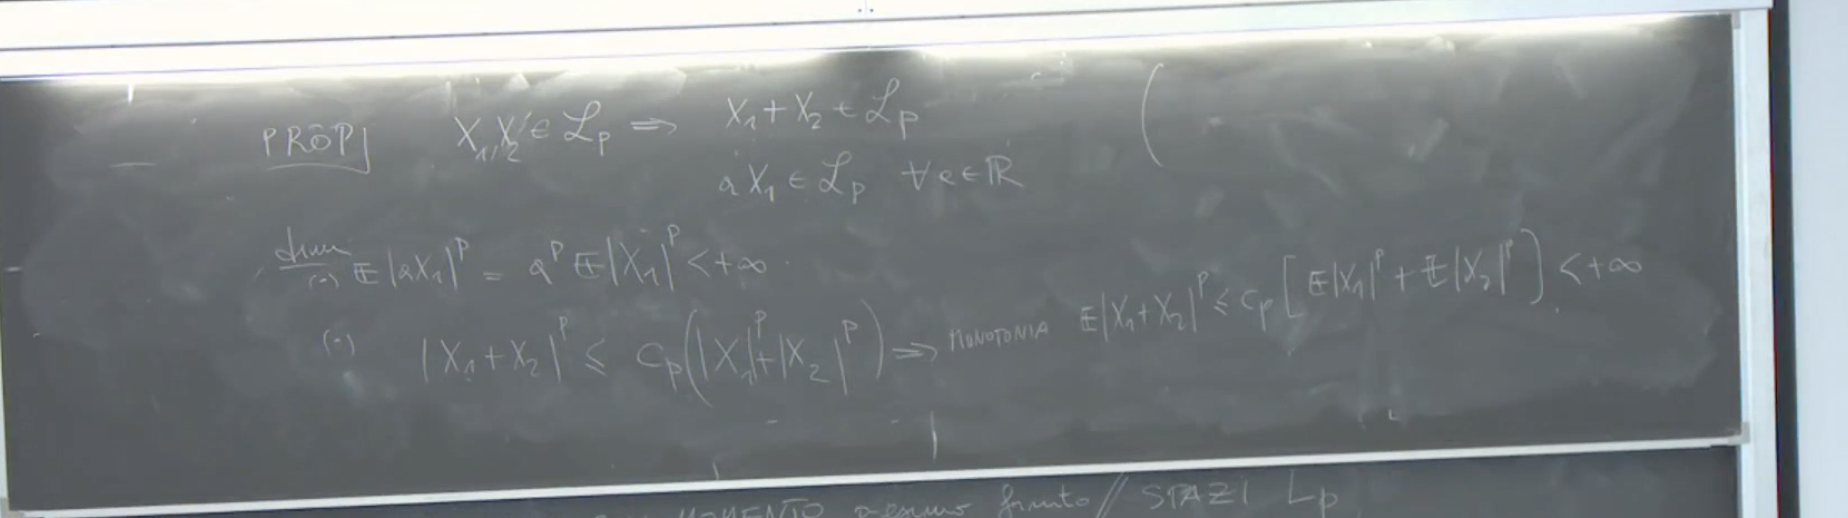 PROP X₁, X₂ ∈ ℒp ⇒ X₁ + X₂ ∈ ℒp
aX₁ ∈ ℒp ∀a∈ℝ
dim
(·) 𝔼|aX₁|^p = a^p 𝔼|X₁|^p < +∞
(·) |X₁+X₂|^p ≤ Cp(|X₁|^p + |X₂|^p) ⇒ MONOTONIA 𝔼|X₁+X₂|^p ≤ Cp[𝔼|X₁|^p + 𝔼|X₂|^p] < +∞
MOMENTO finito // SPAZI Lp